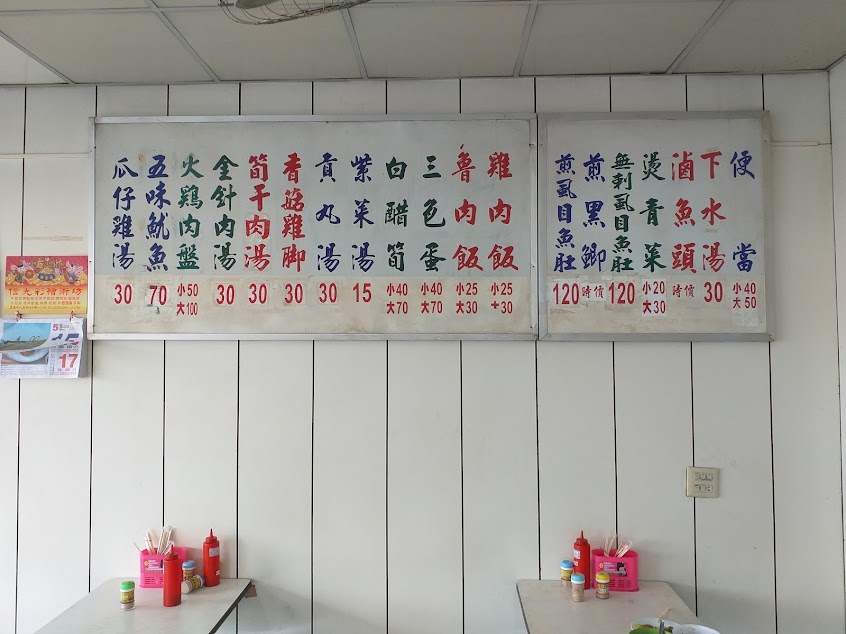 便當 小40 大50
下水湯 30
滷魚頭 時價
燙青菜 小20 大30
無刺虱目魚肚 120
煎黑鯽 時價
煎虱目魚肚 120
雞肉飯 小25 大30
魯肉飯 小25 大30
三色蛋 小40 大70
白醋筍 小40 大70
紫菜湯 15
貢丸湯 30
香菇雞脚 30
筍干肉湯 30
金針肉湯 30
火鷄肉盤 小50 大100
五味魷魚 70
瓜仔雞湯 30
5
15
17